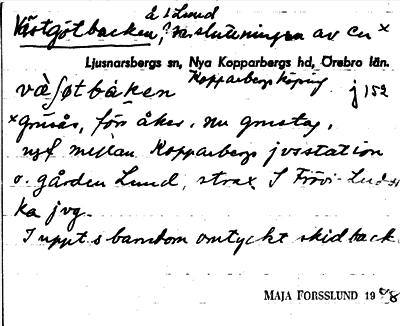 å 1 Lund
Västgötbacken, ? västsluttningen av en x
Ljusnarsbergs sn, Nya Kopparbergs hd, Örebro län.
Kopparbergs köping
j 152
x grusås, förr åker, nu grustag,
mellan Kopparbergs jvstation
o. gården Lund, strax S Frövi-Ludvi
ka jvg.
I uppt:s barndom omtyckt skidback
MAJA FORSSLUND 1948